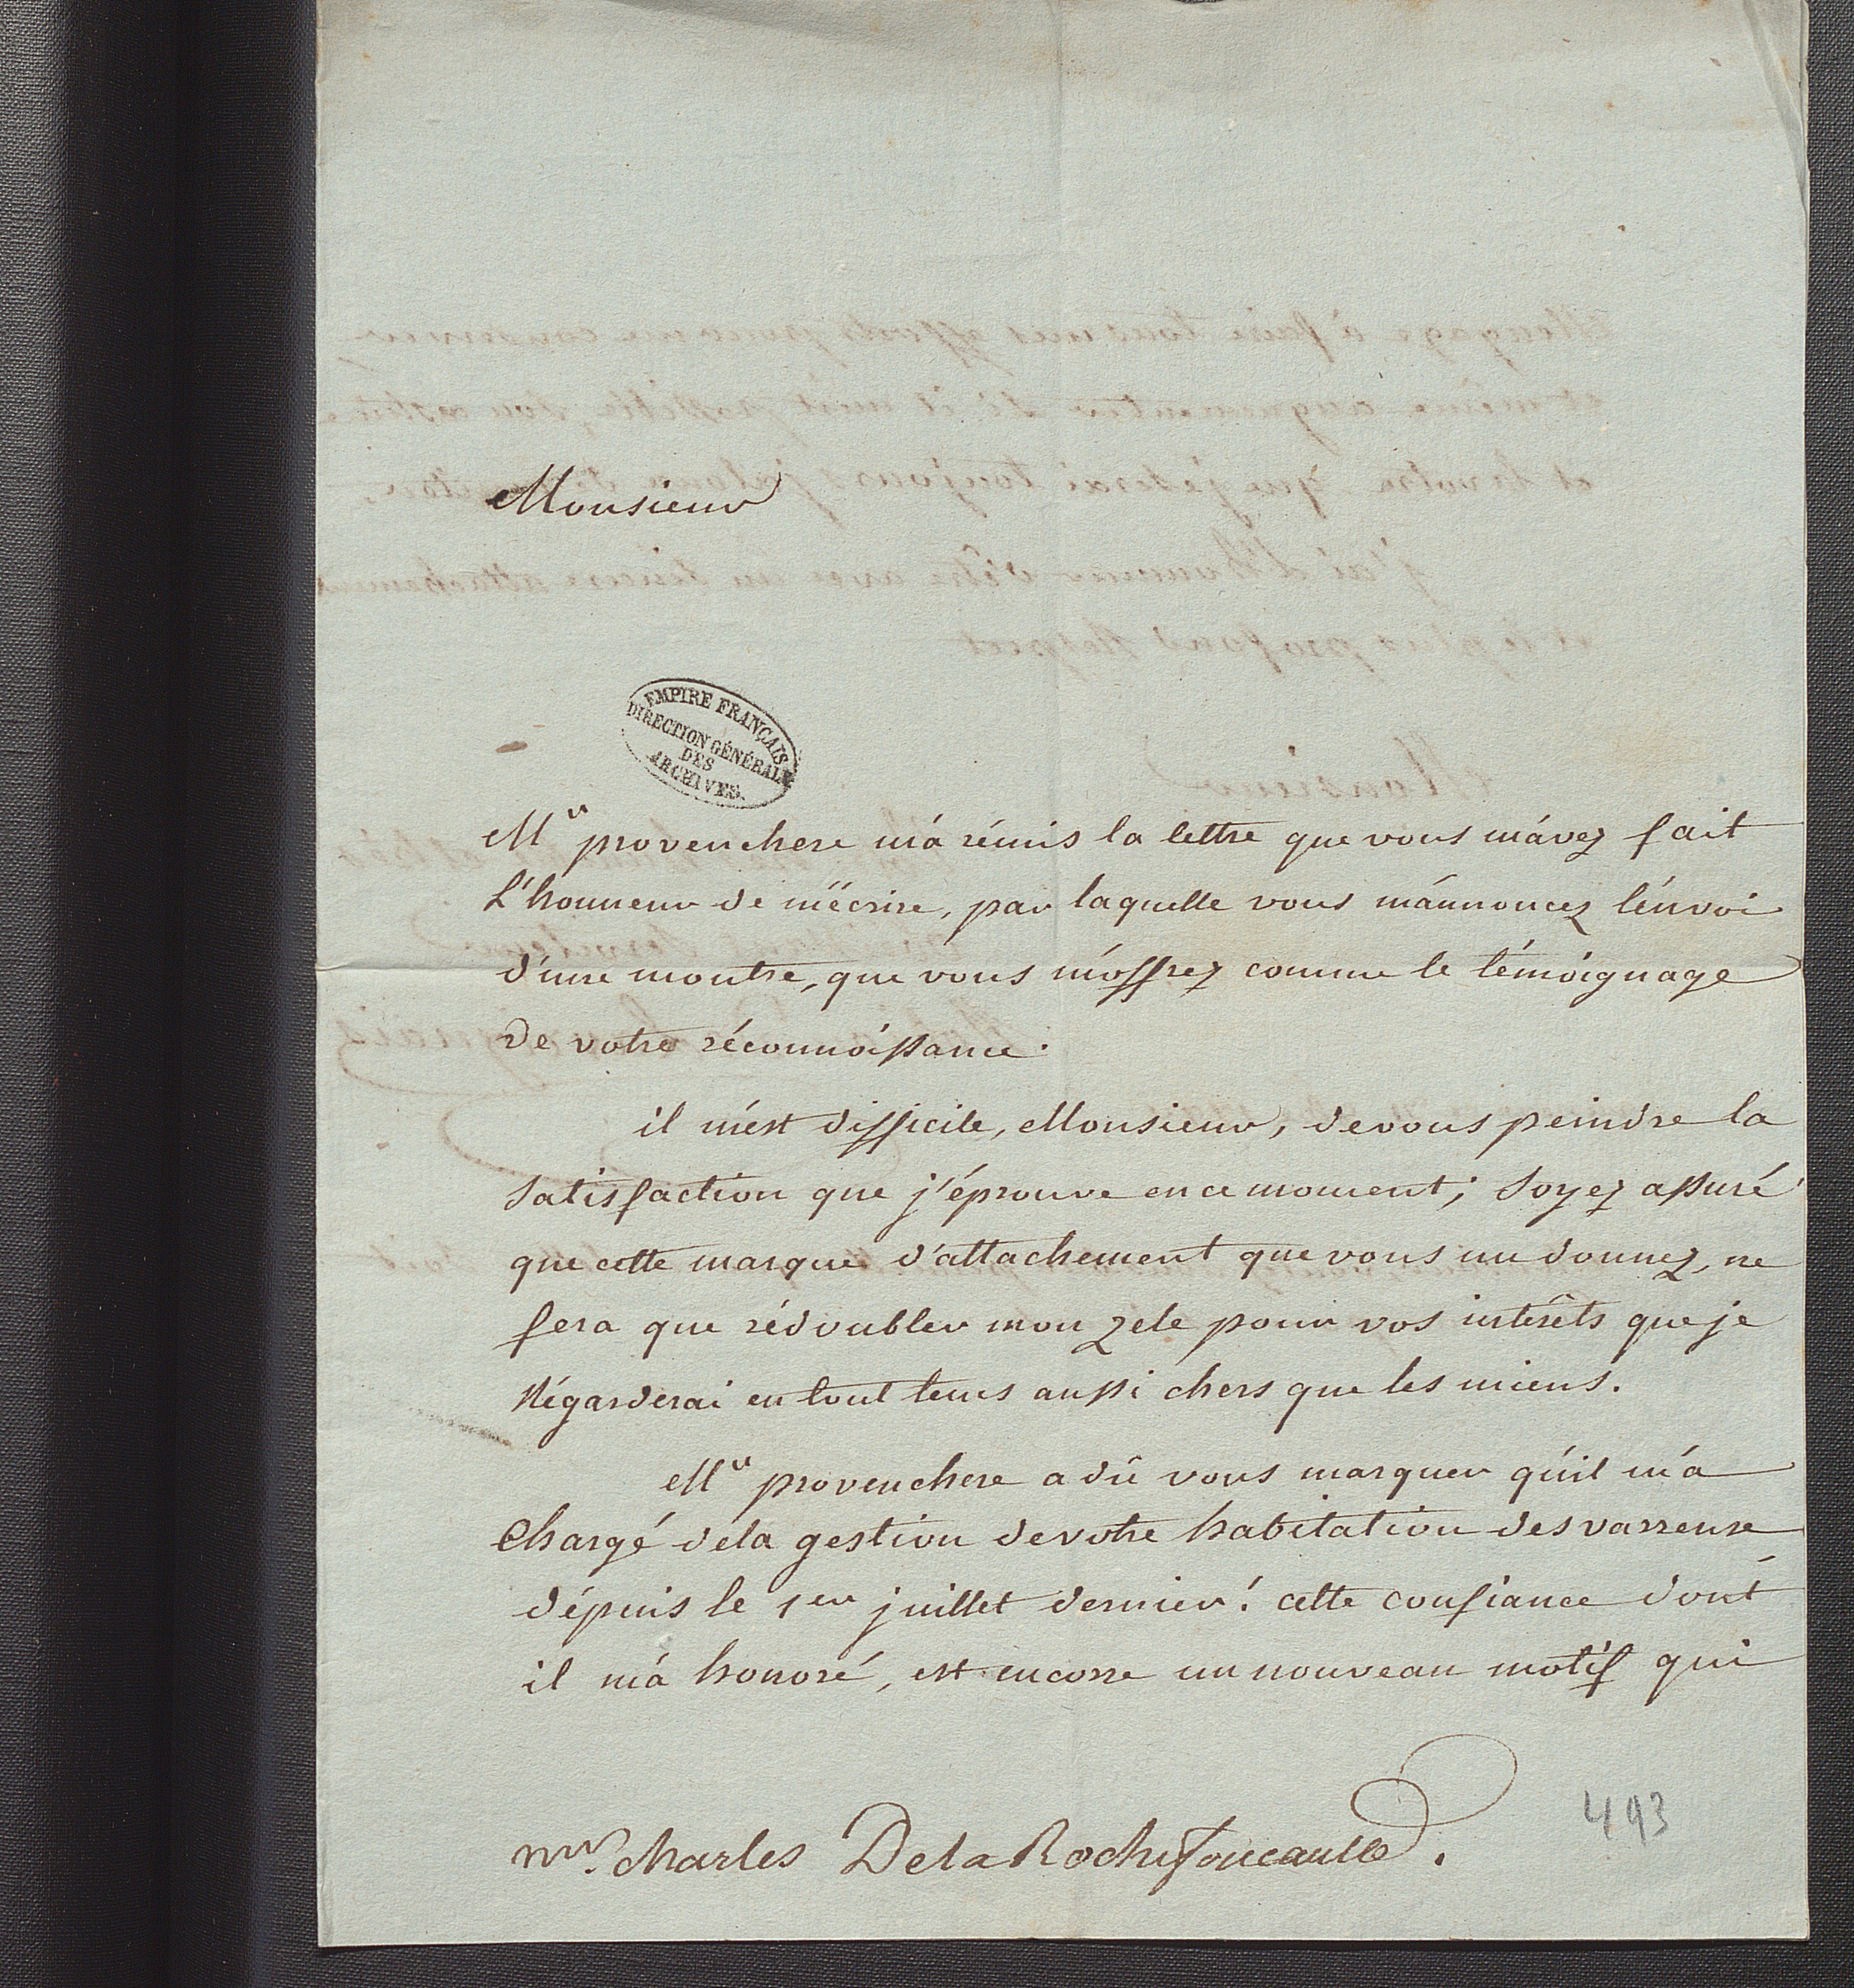 Monsieur
EMPIRE FRANÇAIS
DIRECTION GÉNÉRALE
DES
ARCHIVES.
Mr provenchere m'a rémis la lettre que vous m'avez fait
L'honneur de m'ëcrire, par laquelle vous m'annoncez l'énvoi
d'une montre, que vous m'offrez comme le témoignage
de votre réconnoissance.
il m'est difficile, Monsieur, de vous peindre la
satisfaction que j'éprouve en ce moment; soyez assuré
que cette marque d'attachement que vous me donnez, ne
fera que rédoubler mon zele pour vos intérêts que je
Régarderai en tout tems aussi chers que les miens.
Mr provenchere a dû vous marquer qu'il m'a
Chargé de la gestion de votre habitation des varreuse
dépuis le 1er juillet dernier! cette confiance dont
il m'a honoré, est encorre un nouveau motif qui
mr. Charles De la Rochefoucauld.
493